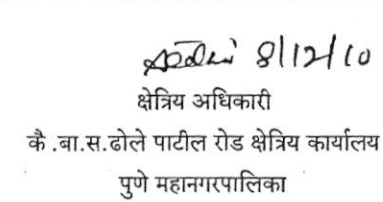 8/12/10
क्षेत्रिय अधिकारी
कै .बा.स.ढोले पाटील रोड क्षेत्रिय कार्यालय
पुणे महानगरपालिका